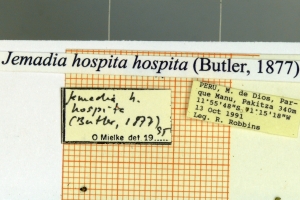 Jemadia hospita hospita (Butler, 1877)
Jemadia h.
hospita
(Butler, 1877)
O Mielke det 19..... 95
PERU, M. de Dios, Par-
que Manu, Pakitza 340m
11°55'48"S, 71°15'18"W
13 Oct 1991
Leg. R. Robbins